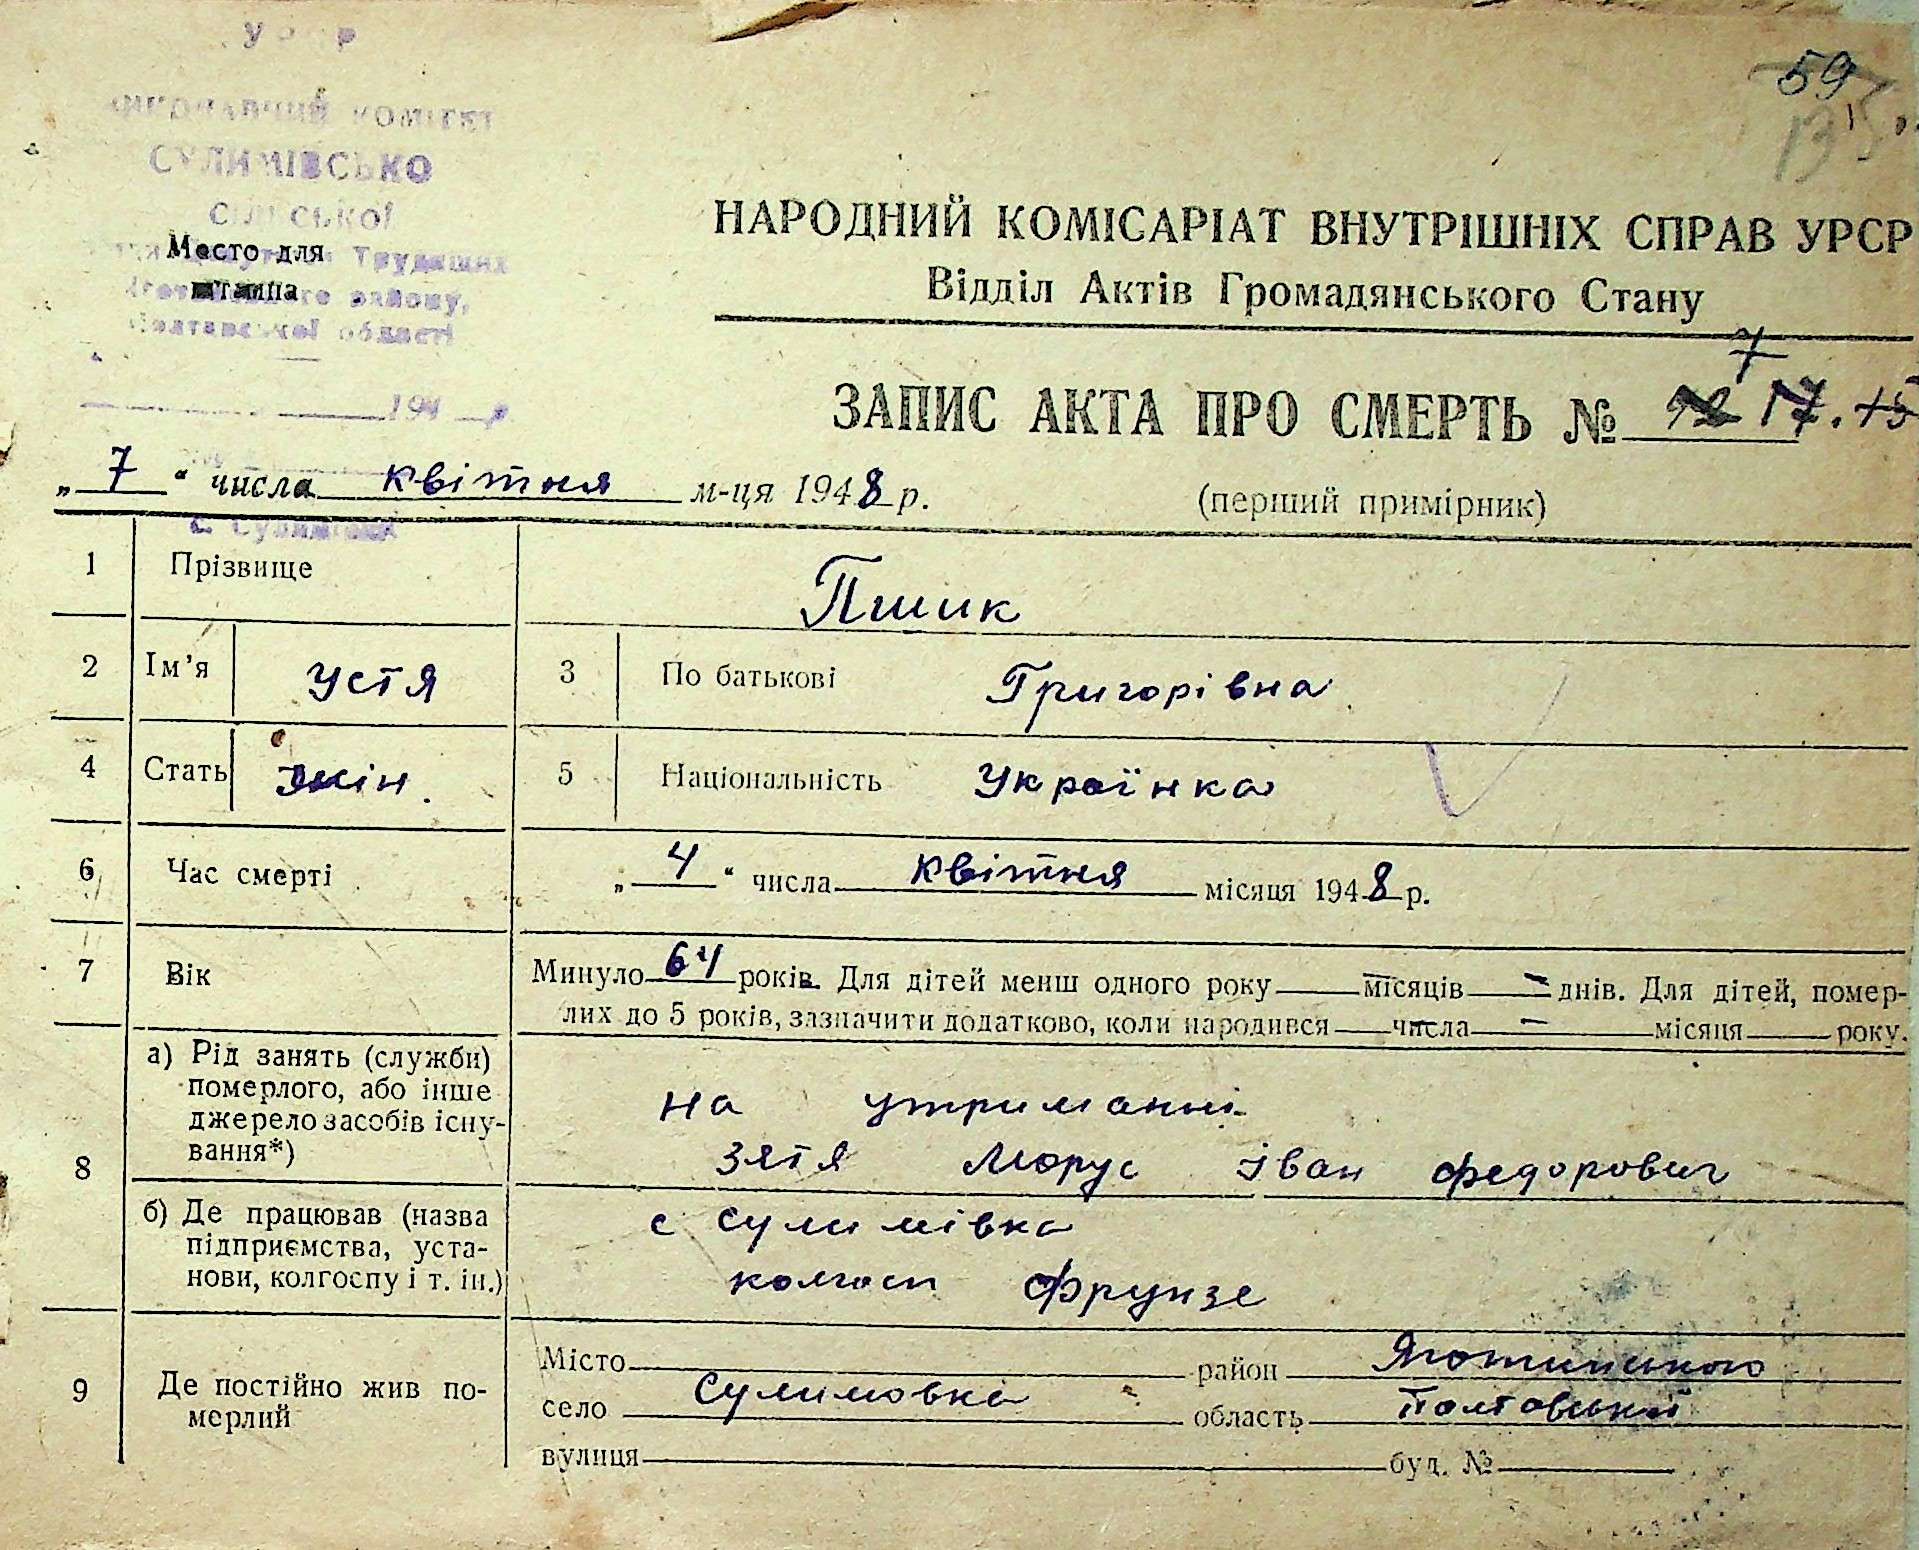 59
СУЛИМІВСЬКО
Место для
штампа
районy,
Полтавської області
194 р
НАРОДНИЙ КОМІСАРІАТ ВНУТРІШНІХ СПРАВ УРСР
Відділ Актів Громадянського Стану
7
ЗАПИС АКТА ПРО СМЕРТЬ № 17. 15
„ 7 “ числа квітня м-ця 1948 р.
(перший примірник)
с. Сулимівка
1 Прізвище Пшик
2 Ім'я Устя 3 По батькові Григорівна
4 Стать жін. 5 Національність Українка
6 Час смерті „ 4 “ числа квітня місяця 1948 р.
7 Вік Минуло 64 років. Для дітей менш одного року місяців - днів. Для дітей, помер-
лих до 5 років, зазначити додатково, коли народився числа - місяця року.
8 а) Рід занять (служби)
померлого, або інше
джерело засобів існу-
вання*)
на утриманні
зятя Морус Іван Федорович
б) Де працював (назва
підприємства, уста-
нови, колгоспу і т. ін.)
с Сулимівка
колгосп Фрунзе
9 Де постійно жив по-
мерлий
Місто район Яготинського
село Сулимовка область Полтавської
вулиця буд. №